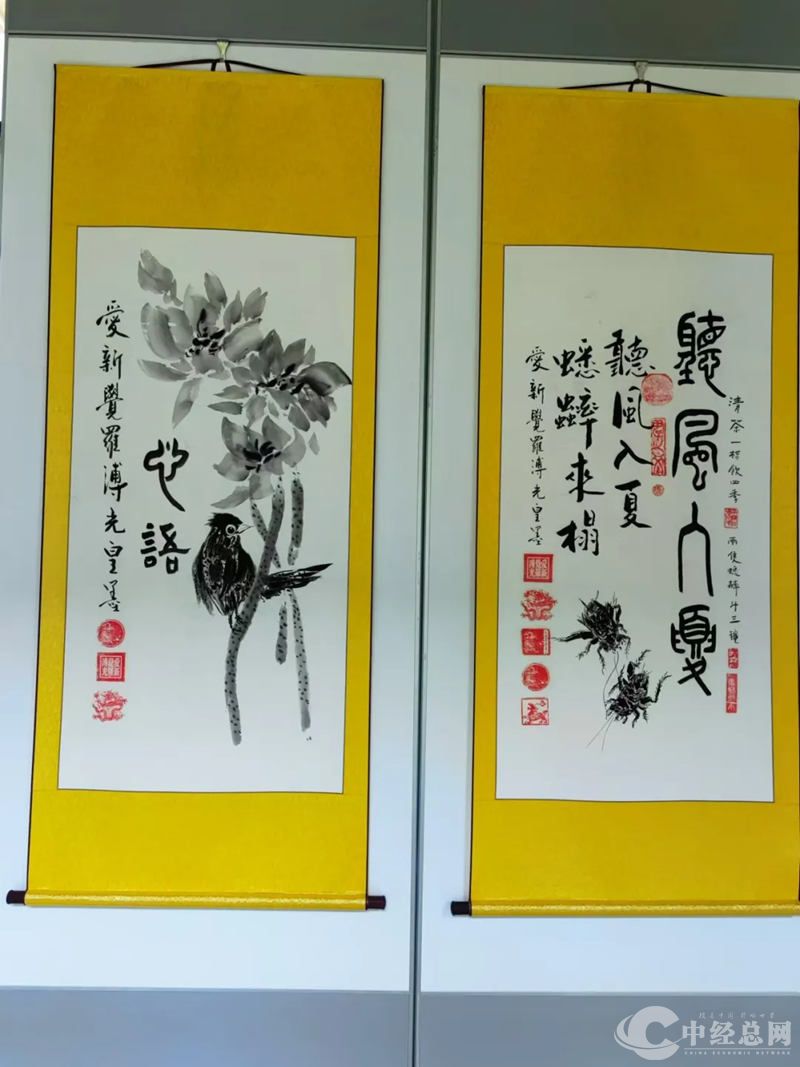 心語
愛新覺羅溥光皇墨
聽風入夏
清茶一杯飲四季
聽風入夏
蟋蟀來榻
愛新覺羅溥光皇墨
中经总网
CHINA ECONOMIC NETWORK